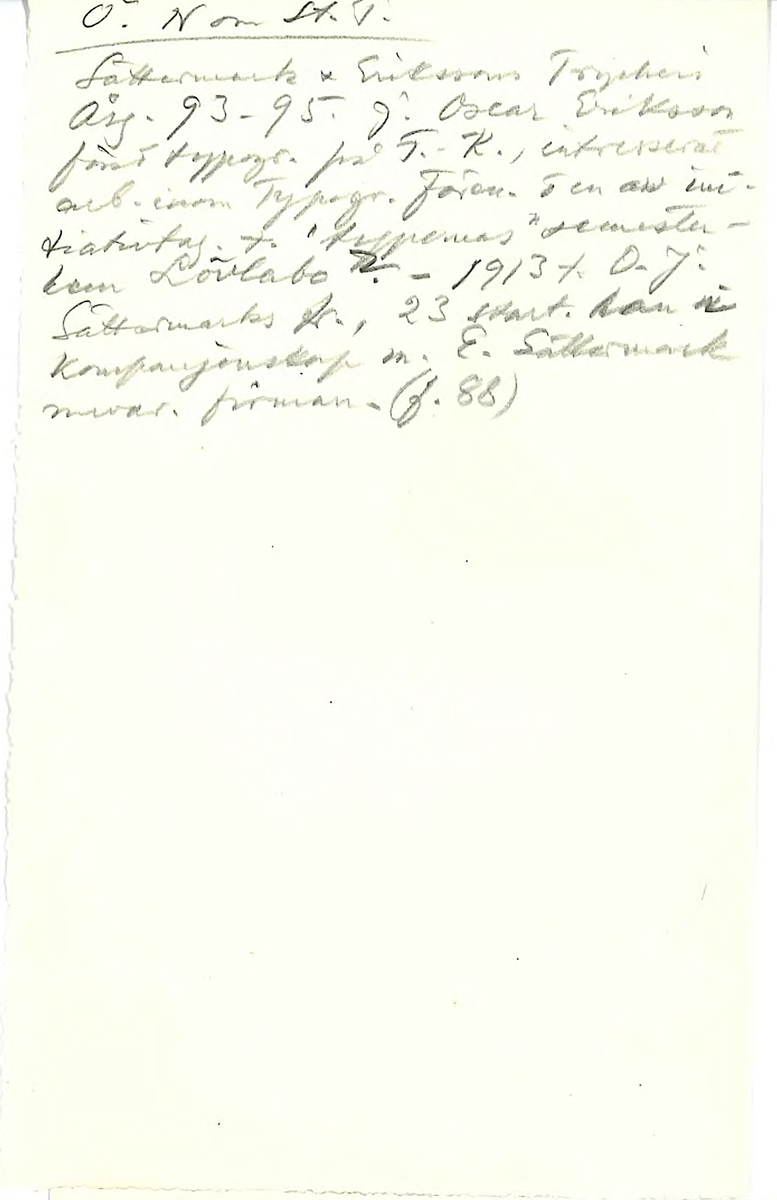 Ö. N om St. T.
Sättermark & Erikssons Tryckeri
Årg. 93-95. J. Oscar Eriksson
först typogr. på T.-K., intresserad
arb. inom Typogr. Fören. o en av ini-
tiativtag. t. "typernas" semester-
hem Lövlabo. - 1913 t. O. J:
Sättermarks tr., 23 start. han i
Kompanjonskap m. E. Sättermark
nuvar. firman. (f. 88)